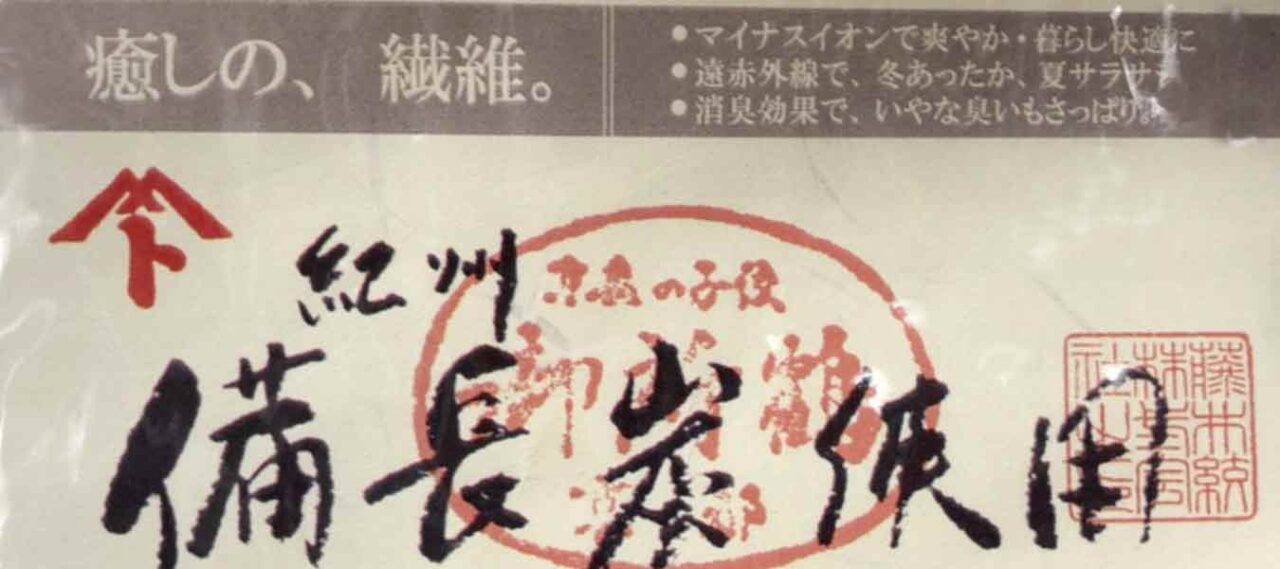 癒しの、繊維。
●マイナスイオンで爽やか・暮らし快適に
●遠赤外線で、冬あったか、夏サラサラ
●消臭効果で、いやな臭いもさっぱり。
紀州
備長炭使用